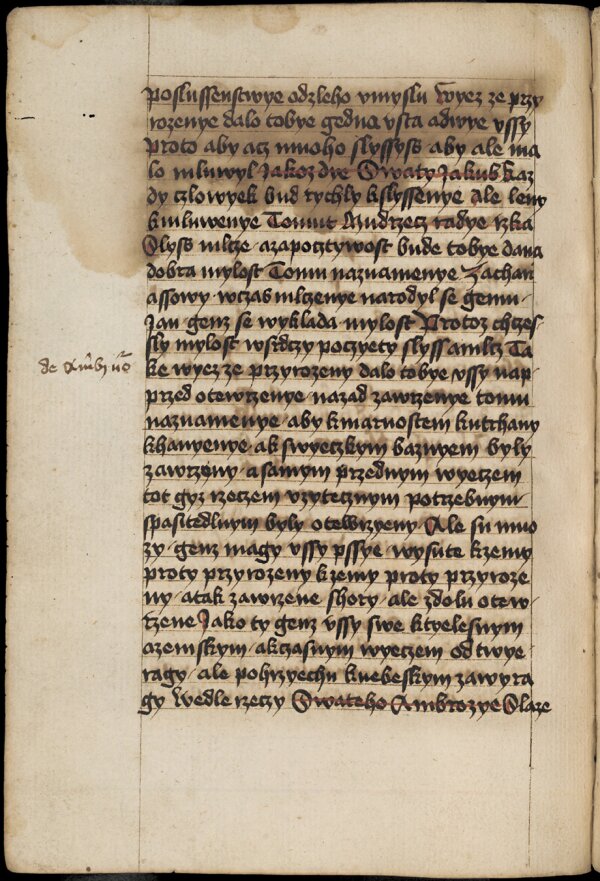 poslussenstwye odzleho vmyslu Wyez ze przy
rozenye dalo tobye gedna vsta adwye vssy
proto aby acz mnoho slyssyss aby ale ma
lo mluwyl Jakoz dye Swaty Jakub kaz
dy czlowyek bud rychly kslyssenye ale leny
kmluwenye Tomut Mudrzecz radye rzka
Slyss mlcze azapocztywost bude tobye dana
dobra mylost Tomu naznamenye Zachari
assowy wczas mlczenye narodyl se gemu
Jan genz se wyklada mylost Protoz chczes
sly mylost wsrdczy poczyety slyss amlcz Ta
ke wyez ze przyrozeny dalo tobye vssy nap
przed otewrzenye nazad zawrzenye tomu
naznamenye aby kmarnostem kutrhany
khanyenye ak swyeczkym baznyem byly
zawrzeny asamym przednym wyeczem
tot gyz rzeczem vzytecznym potrzebnym
spasitedlnym byly otewrzyeny Ale su mno
zy genz magy vssy pssye wysute kzemy
proty przyrozeny kzemy proty przyroze
ny atak zawrzene shory ale zdolu otew
rzene Jako ty genz vssy swe ktyelesnym
azemskym akczasnym wyeczem odtwye
ragy ale pohrzyechu knebeskym zawyra
gy Wedle rzeczy Swateho Ambrozye Slaze